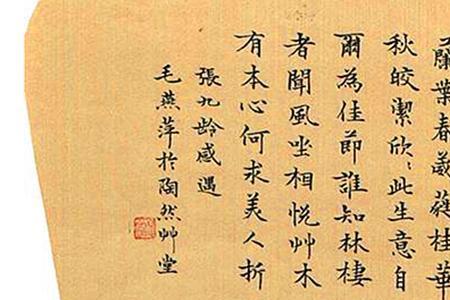 蘭葉春葳蕤桂華
秋皎潔欣欣此生意自
爾為佳節誰知林棲
者聞風坐相悅艸木
有本心何求美人折
張九齡感遇
毛燕萍於陶然艸堂